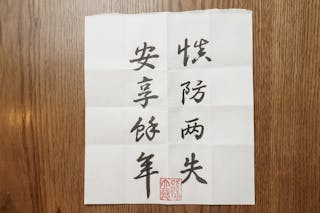 慎防两失
安享餘年